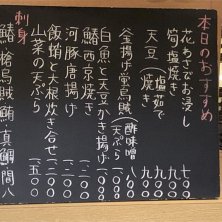 本日のおすすめ
花わさびお浸し 七〇〇
筍塩焼き 九〇〇
天豆(塩茹で 焼き) 九〇〇
釜揚げ蛍烏賊(酢味噌 天ぷら) 八〇〇
白魚と大豆かき揚げ 一二〇〇
鰆西京焼き 一二〇〇
河豚唐揚げ 一二〇〇
飯蛸と大根炊き合せ 一二〇〇
山菜の天ぷら 一五〇〇
刺身
鯖 槍烏賊 鮪 真鯛 間八